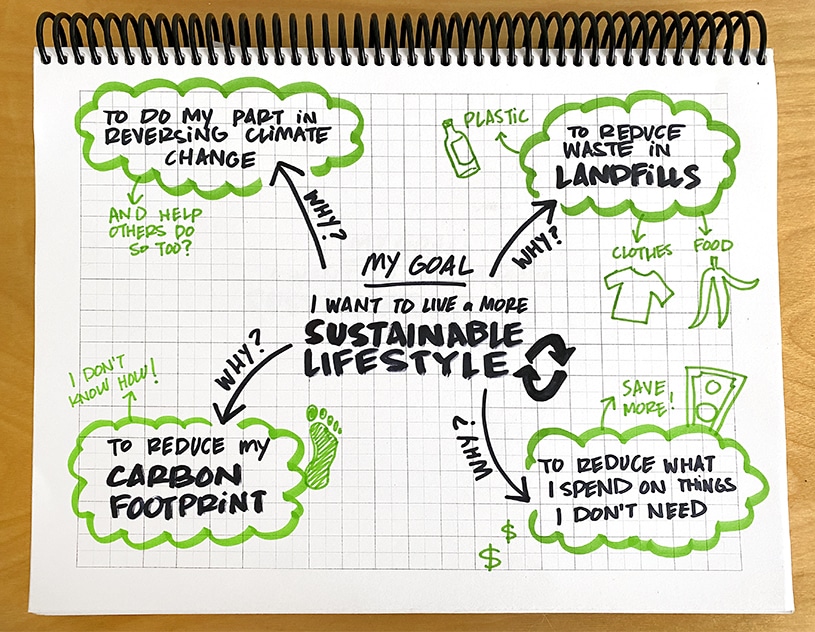 TO DO MY PART IN
REVERSING CLIMATE
CHANGE
AND HELP
OTHERS DO
SO TOO?
WHY?
PLASTIC
TO REDUCE
WASTE IN
LANDFILLS
CLOTHES
FOOD
WHY?
MY GOAL
I WANT TO LIVE a MORE
SUSTAINABLE
LIFESTYLE
WHY?
I DON'T
KNOW HOW!
TO REDUCE MY
CARBON
FOOTPRINT
WHY?
SAVE
MORE!
TO REDUCE WHAT
I SPEND ON THINGS
I DON'T NEED
$
$